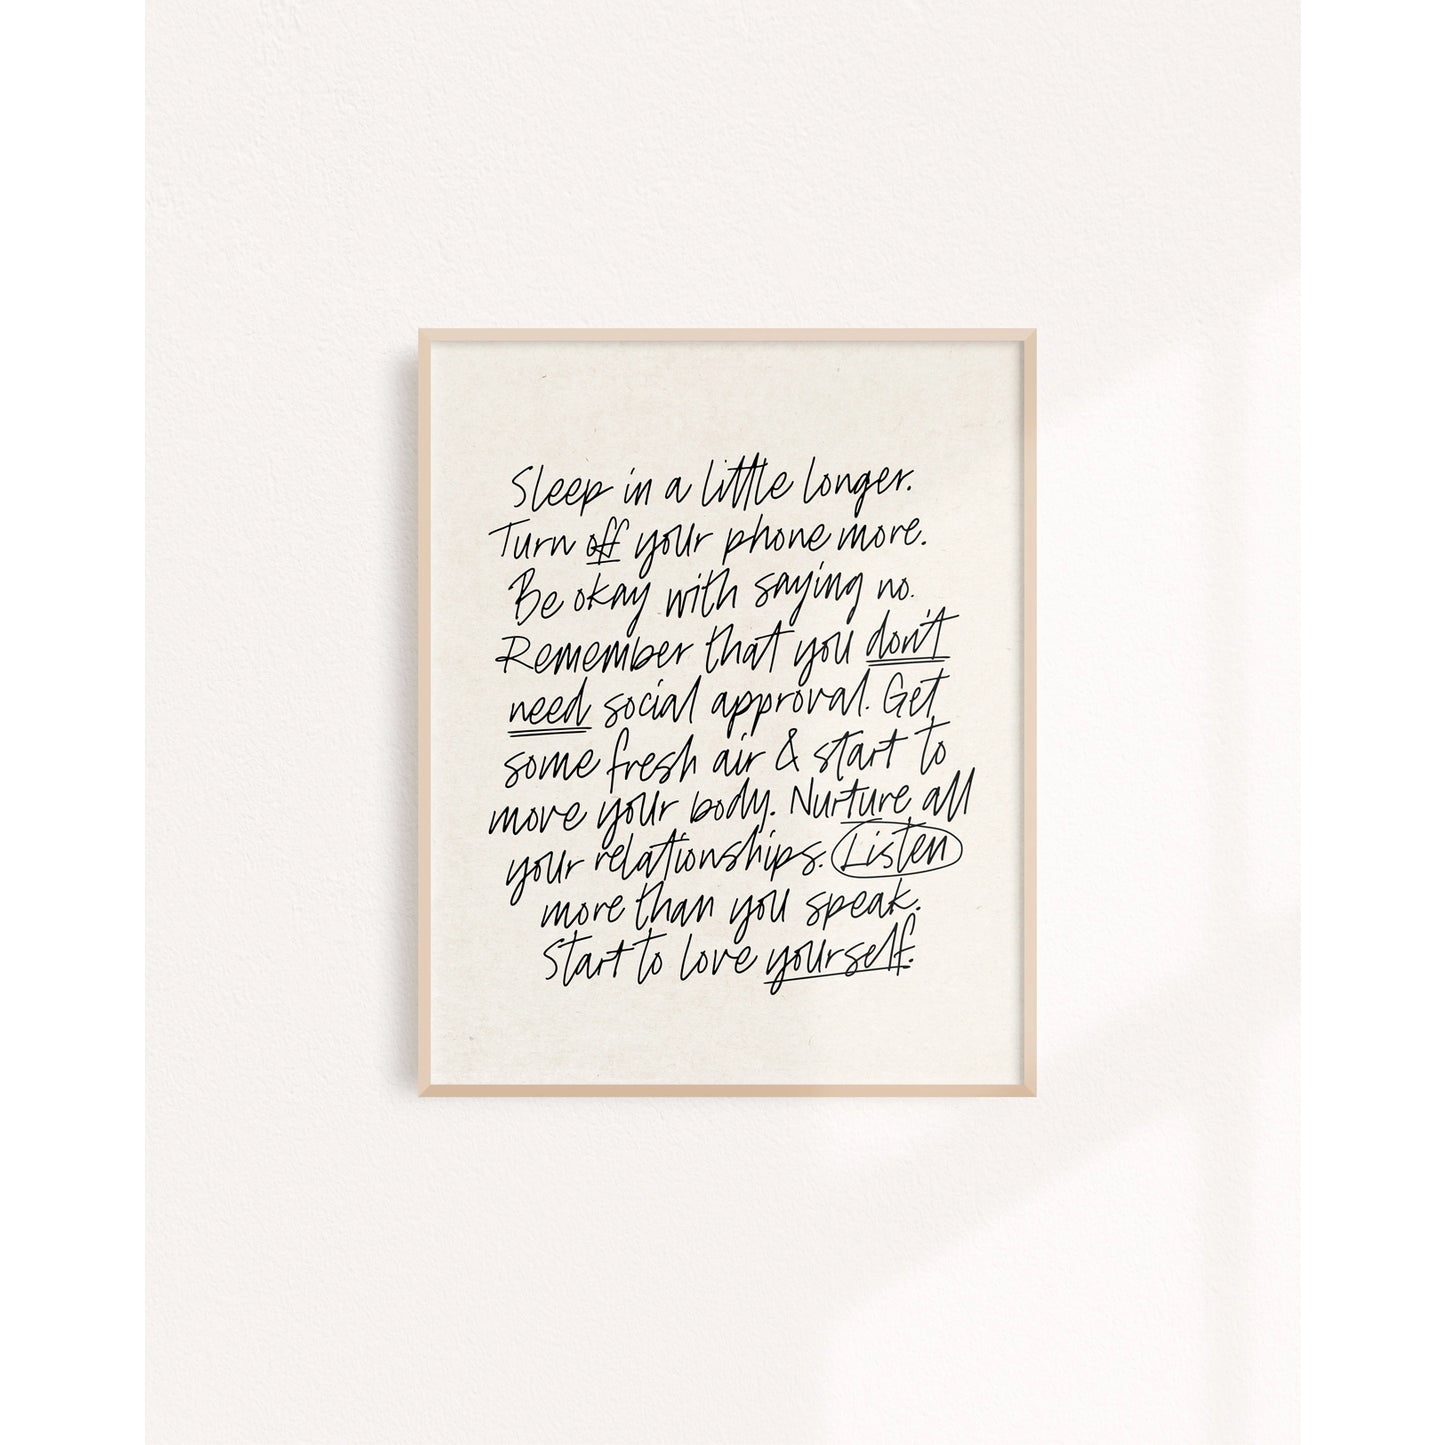 Sleep in a little longer.
Turn off your phone more.
Be okay with saying no.
Remember that you don't
need social approval. Get
some fresh air & start to
move your body. Nurture all
your relationships. Listen
more than you speak.
Start to love yourself.